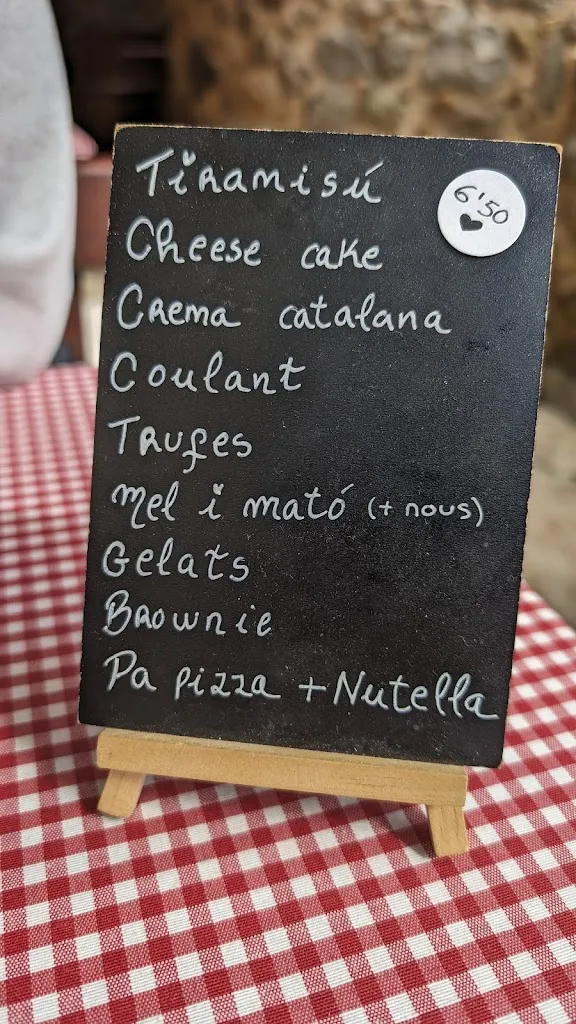 Tiramisú
6'50
Cheese cake
Crema catalana
Coulant
Trufes
Mel i mató (+ nous)
Gelats
Brownie
Pa pizza + Nutella